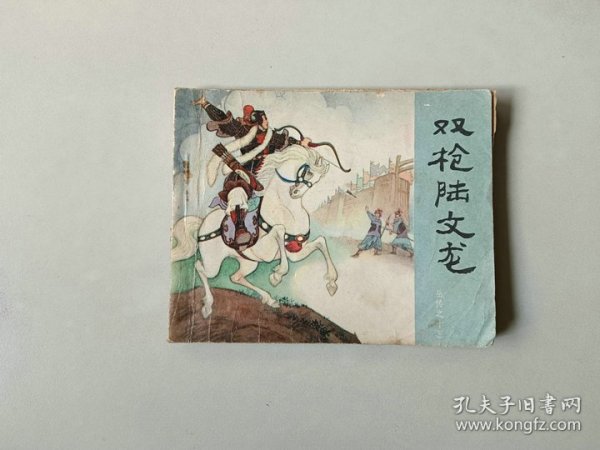 双枪陆文龙
岳传之十二
孔夫子旧书网
www.kongfz.com